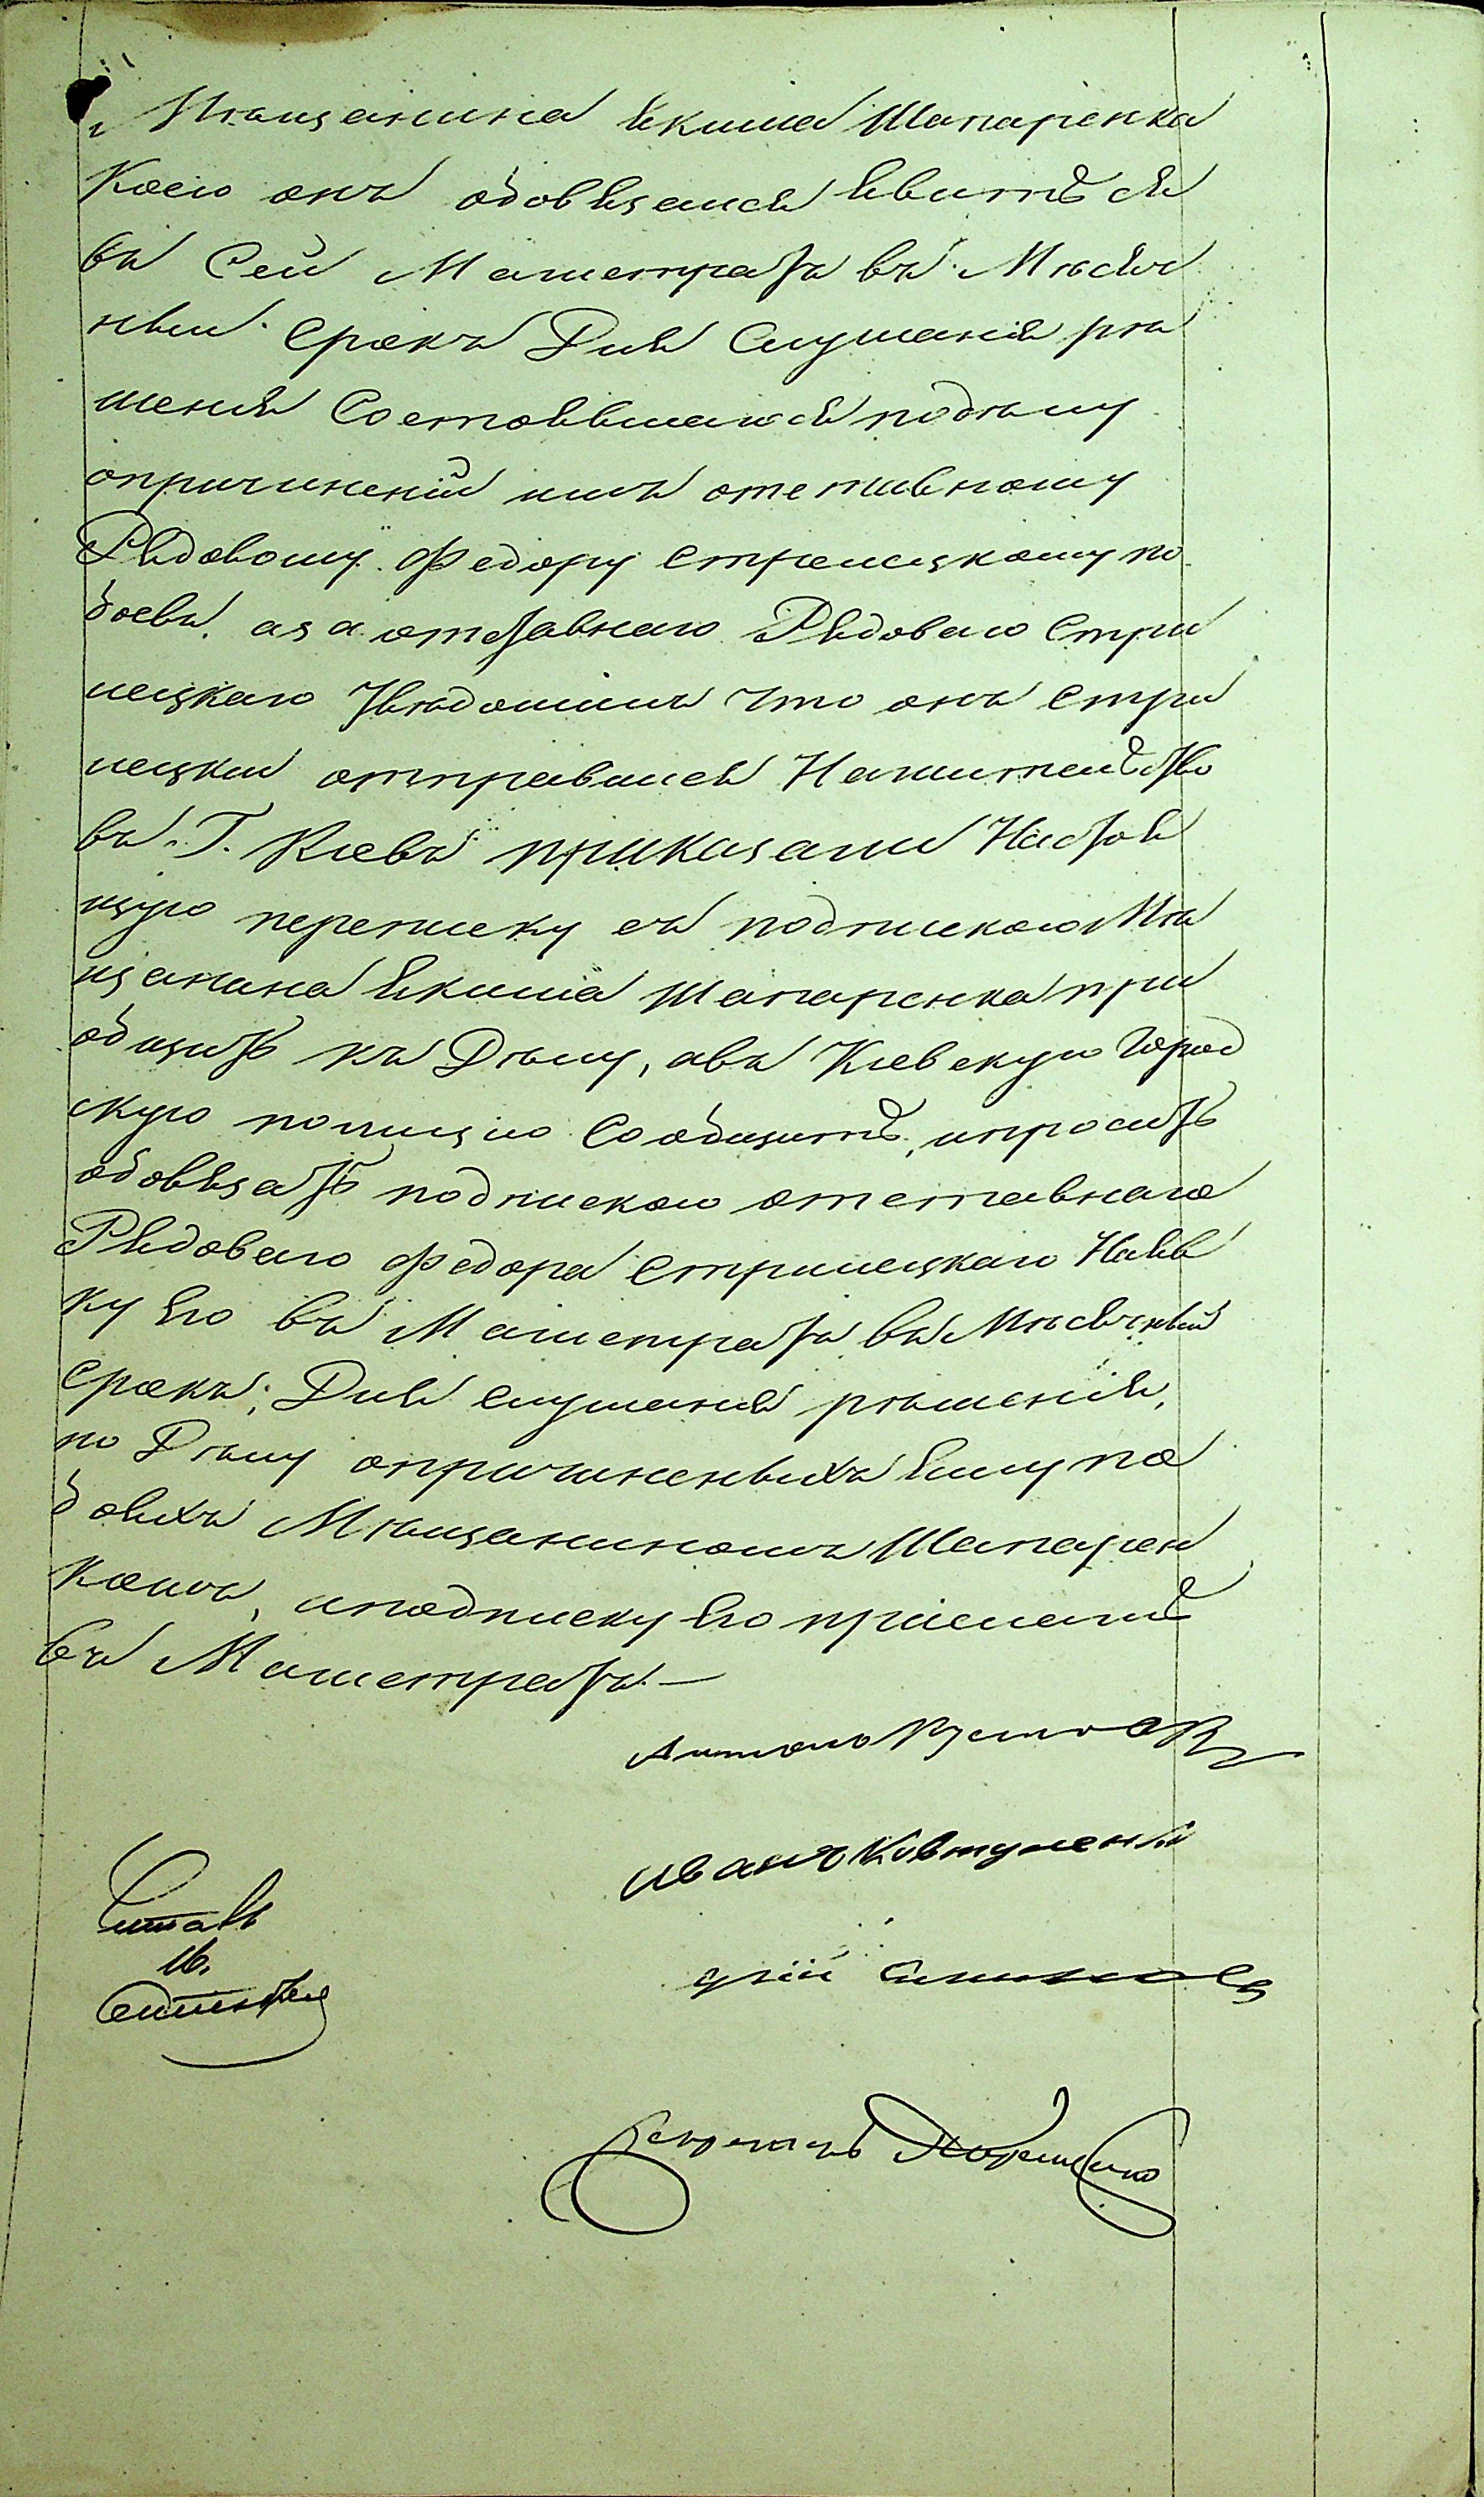 Мѣщанина Якима Шапаренка
Коего онъ обовязался явитьсѧ
въ Сей Магистратъ въ Мѣсяч
ный Срокъ Для Слушанія рѣ
шенія Состоявшагося подѣлу
опричиненіи имъ отставному
Рядовому Федору Стрелецкому по
боевъ, аза отставнаго Рядоваго Стри
лецкаго Увѣдомилъ что онъ Стри
лецкий отправился Нажительство
въ Г. Киевъ приказали Настоя
щую переписку съ подпискою Мѣ
щанина Якима Шапаренка при
общить къ Дѣлу, авъ Киевскую Город
скую полицию Сообщить, ипросить
обовязать подпискою отставнаго
Рядоваго Федора Стрилецкаго Наяв
ку Его въ Магистратъ въ Мѣсячный
Срокъ, Для слушания рѣшенія,
по Дѣлу опричиненыхъ Ему по
бояхъ Мѣщаниномъ Шапарен
комъ, иподписку Его прислать
въ Магистратъ —
Иванъ Ковтуненко
Читалъ
Секретарь